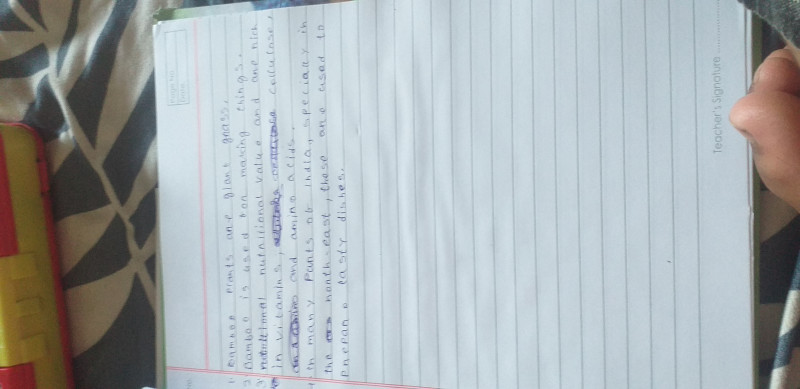 Page No.
Date
1. Bamboo plants are giant grass.
2. Bamboo is used for making things.
3. nutritional value and are rich
in vitamins, cellulose,
and amino acids.
4. In many parts of India, specially in
the north-east, these are used to
prepare tasty dishes.
Teacher's Signature